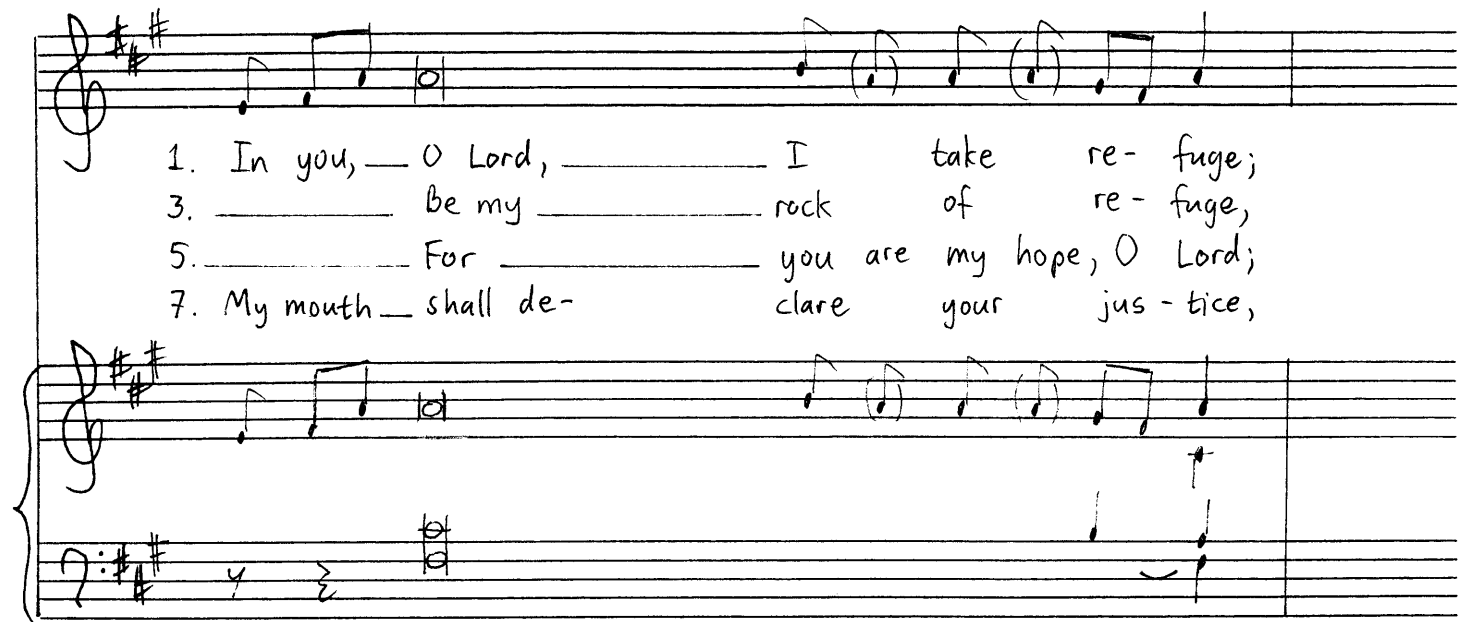 1. In you, __ O Lord, ________ I take re- fuge;
3. ________ Be my ________ rock of re- fuge,
5. ________ For ________ you are my hope, O Lord;
7. My mouth __ shall de- clare your jus- tice,